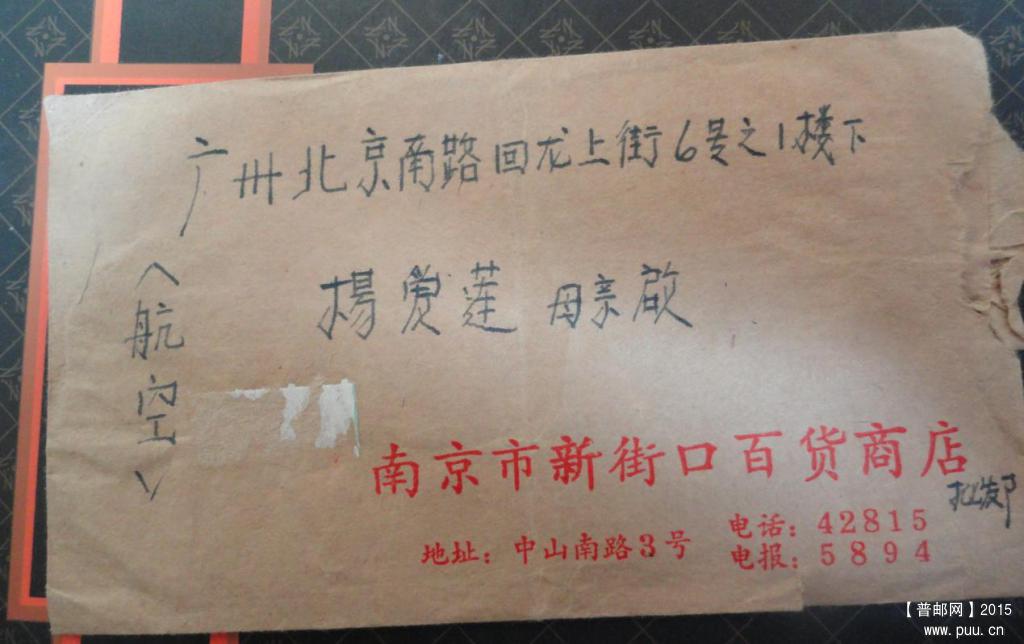 广州北京南路回龙上街6号之1楼下
楊爱莲 母亲啟
〈航空〉
南京市新街口百货商店
批发部
地址：中山南路3号
电话：42815
电报：5894
【普邮网】2015
www.puu.cn